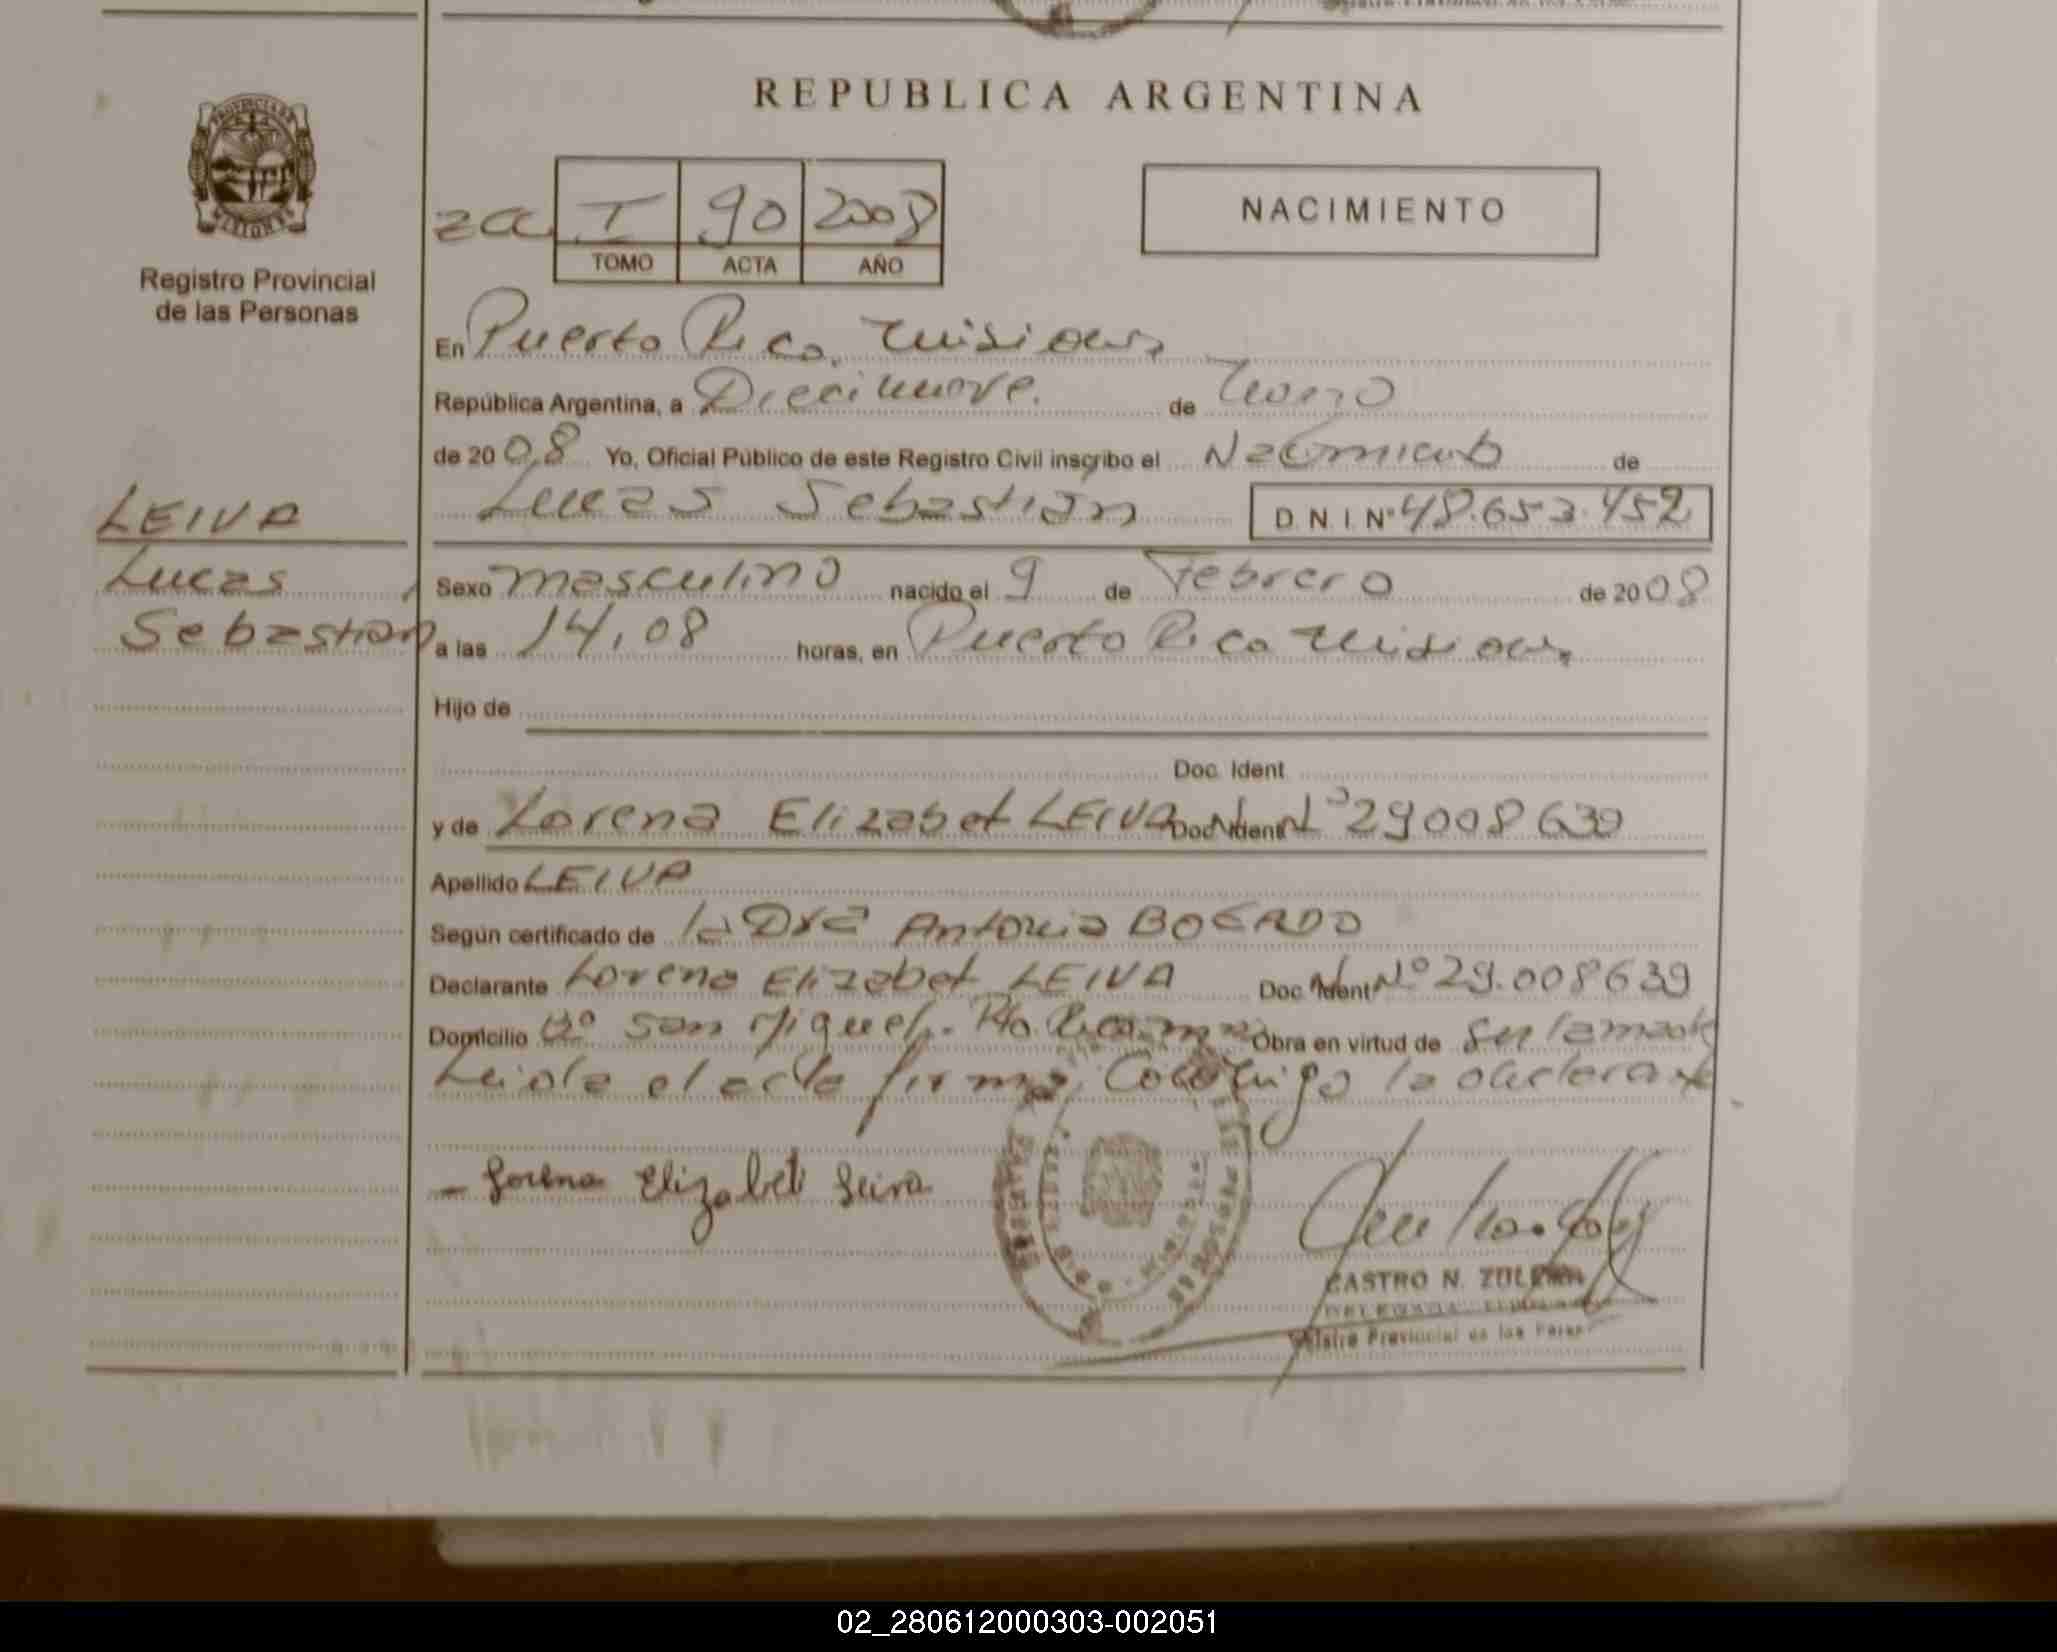 REPUBLICA ARGENTINA
PROVINCIA DE MISIONES
Registro Provincial
de las Personas
za I 90 2008
TOMO ACTA AÑO
NACIMIENTO
En Puerto Rico, Misiones
República Argentina, a Diecinueve de Marzo
de 2008 Yo, Oficial Público de este Registro Civil inscribo el Nacimiento de
Lucas Sebastián D.N.I. Nº 48.653.452
LEIVA
Lucas
Sebastian
Sexo masculino nacido el 9 de Febrero de 2008
a las 14,08 horas, en Puerto Rico Misiones
Hijo de
Doc. Ident
y de Lorena Elizabet LEIVA Doc. Ident Nº 29008639
Apellido LEIVA
Según certificado de la Dra Antonia BOERDO
Declarante Lorena Elizabet LEIVA Doc. Ident Nº 29.008639
Domicilio Bº San Miguel. Pto. Rico Obra en virtud de ser la madre
Leída el acta firma conmigo la declarante
- Lorena Elizabeti Leiva
CASTRO N. ZULEMA
Registro Provincial de las Personas
02_280612000303-002051